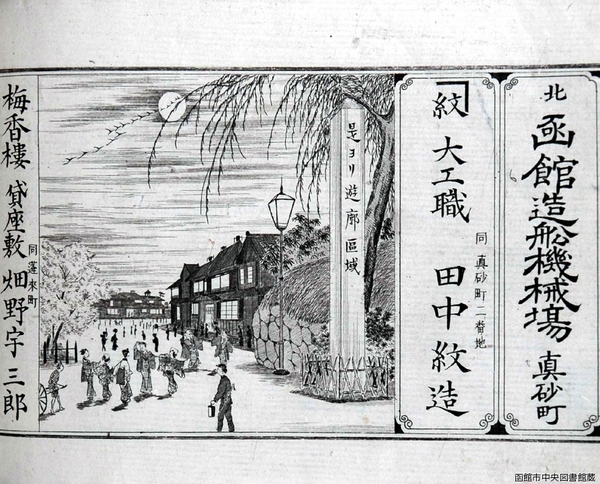 北
函館造船機械場 真砂町
紋 大工職 田中紋造
同 真砂町二番地
是ヨリ遊廓區域
梅香樓 貸座敷 畑野宇三郎
同 蓬来町
函館市中央図書館蔵